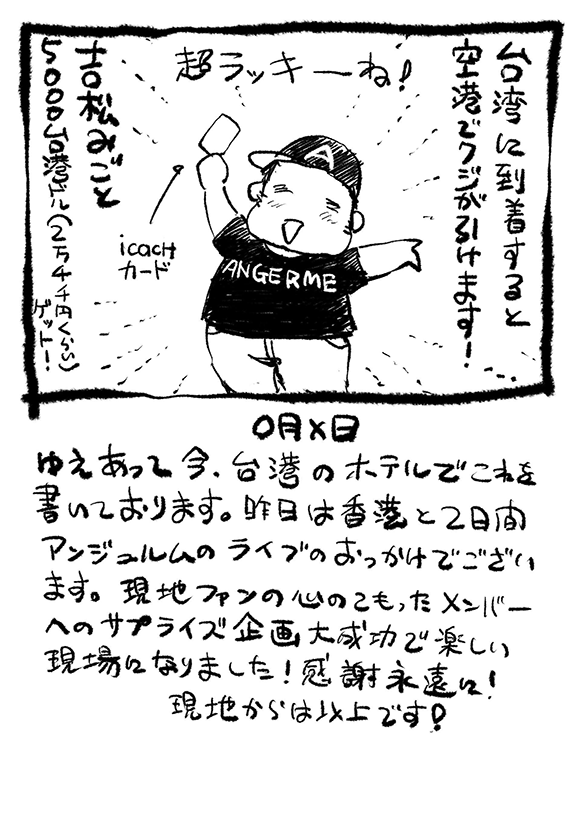 台湾に到着すると
空港でクジが引けます!
超ラッキーね!
A
ANGERME
icacH
カード
吉松みごと
5000台港ドル(2万4千円くらい)
ゲット!
〇月×日
ゆえあって今、台港のホテルでこれを
書いております。昨日は香港と2日間
アンジュルムのライブのおっかけでござい
ます。現地ファンの心のこもったメンバー
へのサプライズ企画大成功で楽しい
現場になりました!感謝永遠に!
現地からは以上です!